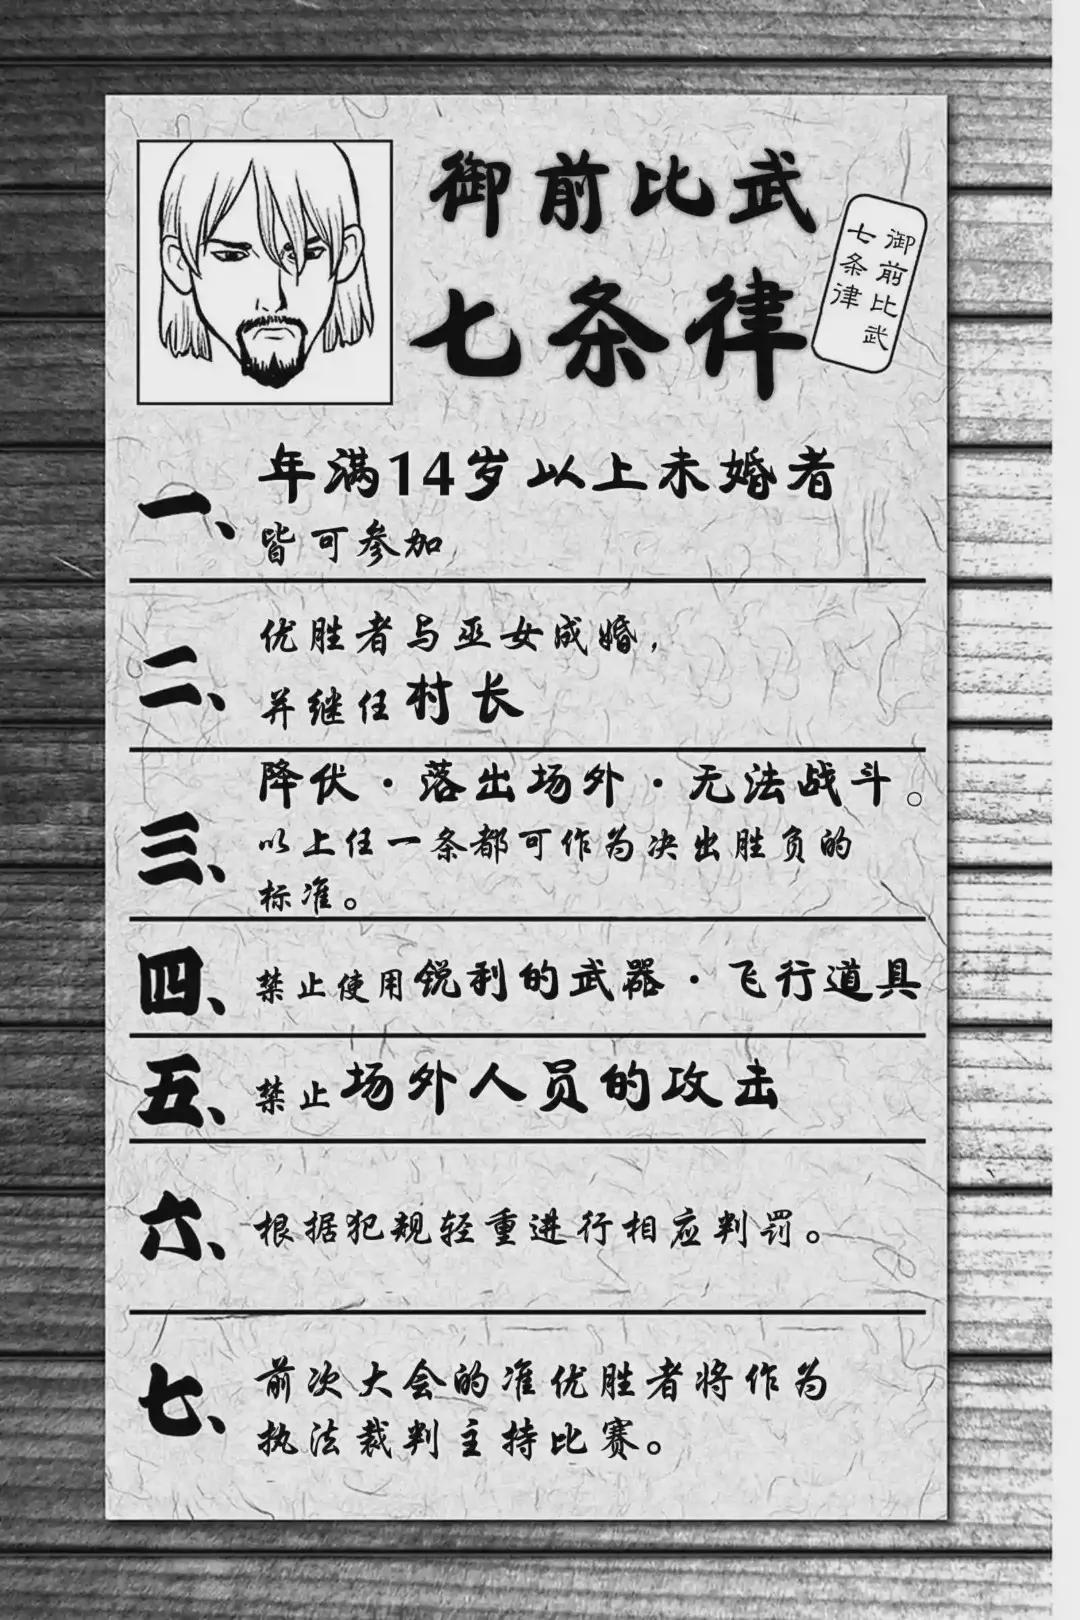 御前比武
七条律
御前比武
七条律
一、
年满14岁以上未婚者
皆可参加
二、
优胜者与巫女成婚,
并继任村长
三、
降伏·落出场外·无法战斗。
以上任一条都可作为决出胜负的
标准。
四、
禁止使用锐利的武器·飞行道具
五、
禁止场外人员的攻击
六、
根据犯规轻重进行相应判罚。
七、
前次大会的准优胜者将作为
执法裁判主持比赛。